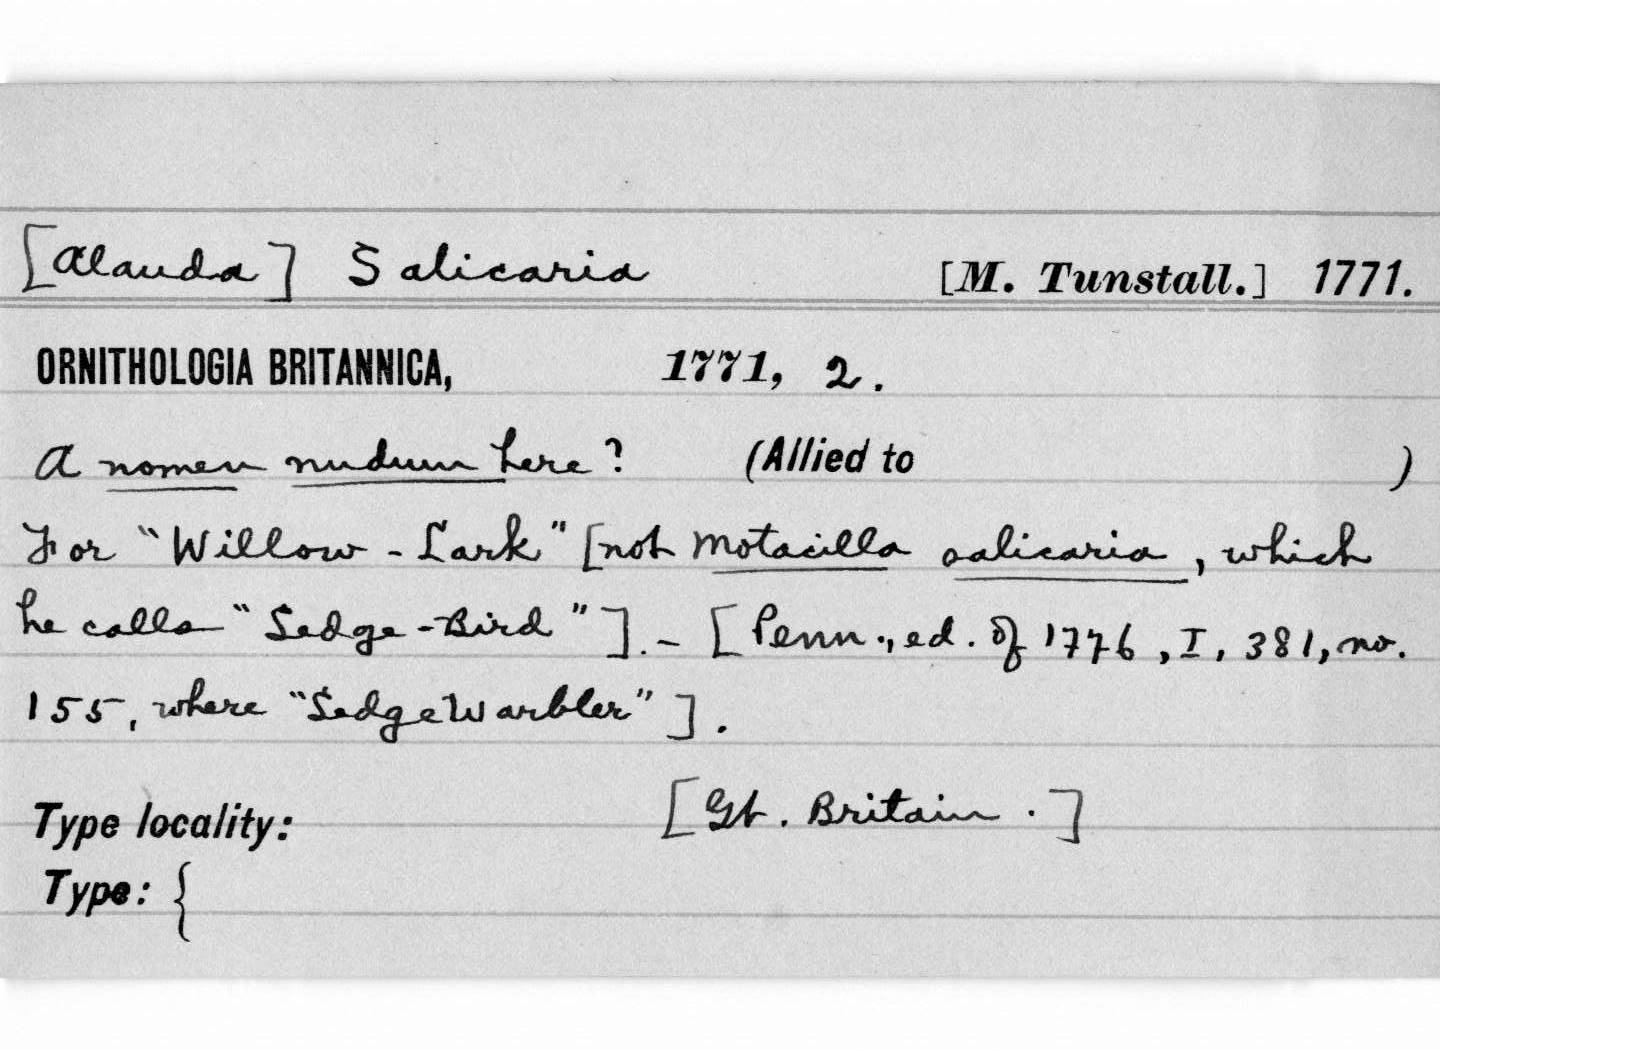 [Alauda] Salicaria [M. Tunstall.] 1771.
ORNITHOLOGIA BRITANNICA, 1771, 2.
A nomen nudum here? (Allied to )
For "Willow-Lark" [not Motacilla salicaria, which
he calls "Sedge-Bird"]. - [Penn., ed. of 1776, I, 381, no.
155, where "Sedge Warbler"].
Type locality: [Gt. Britain.]
Type: {